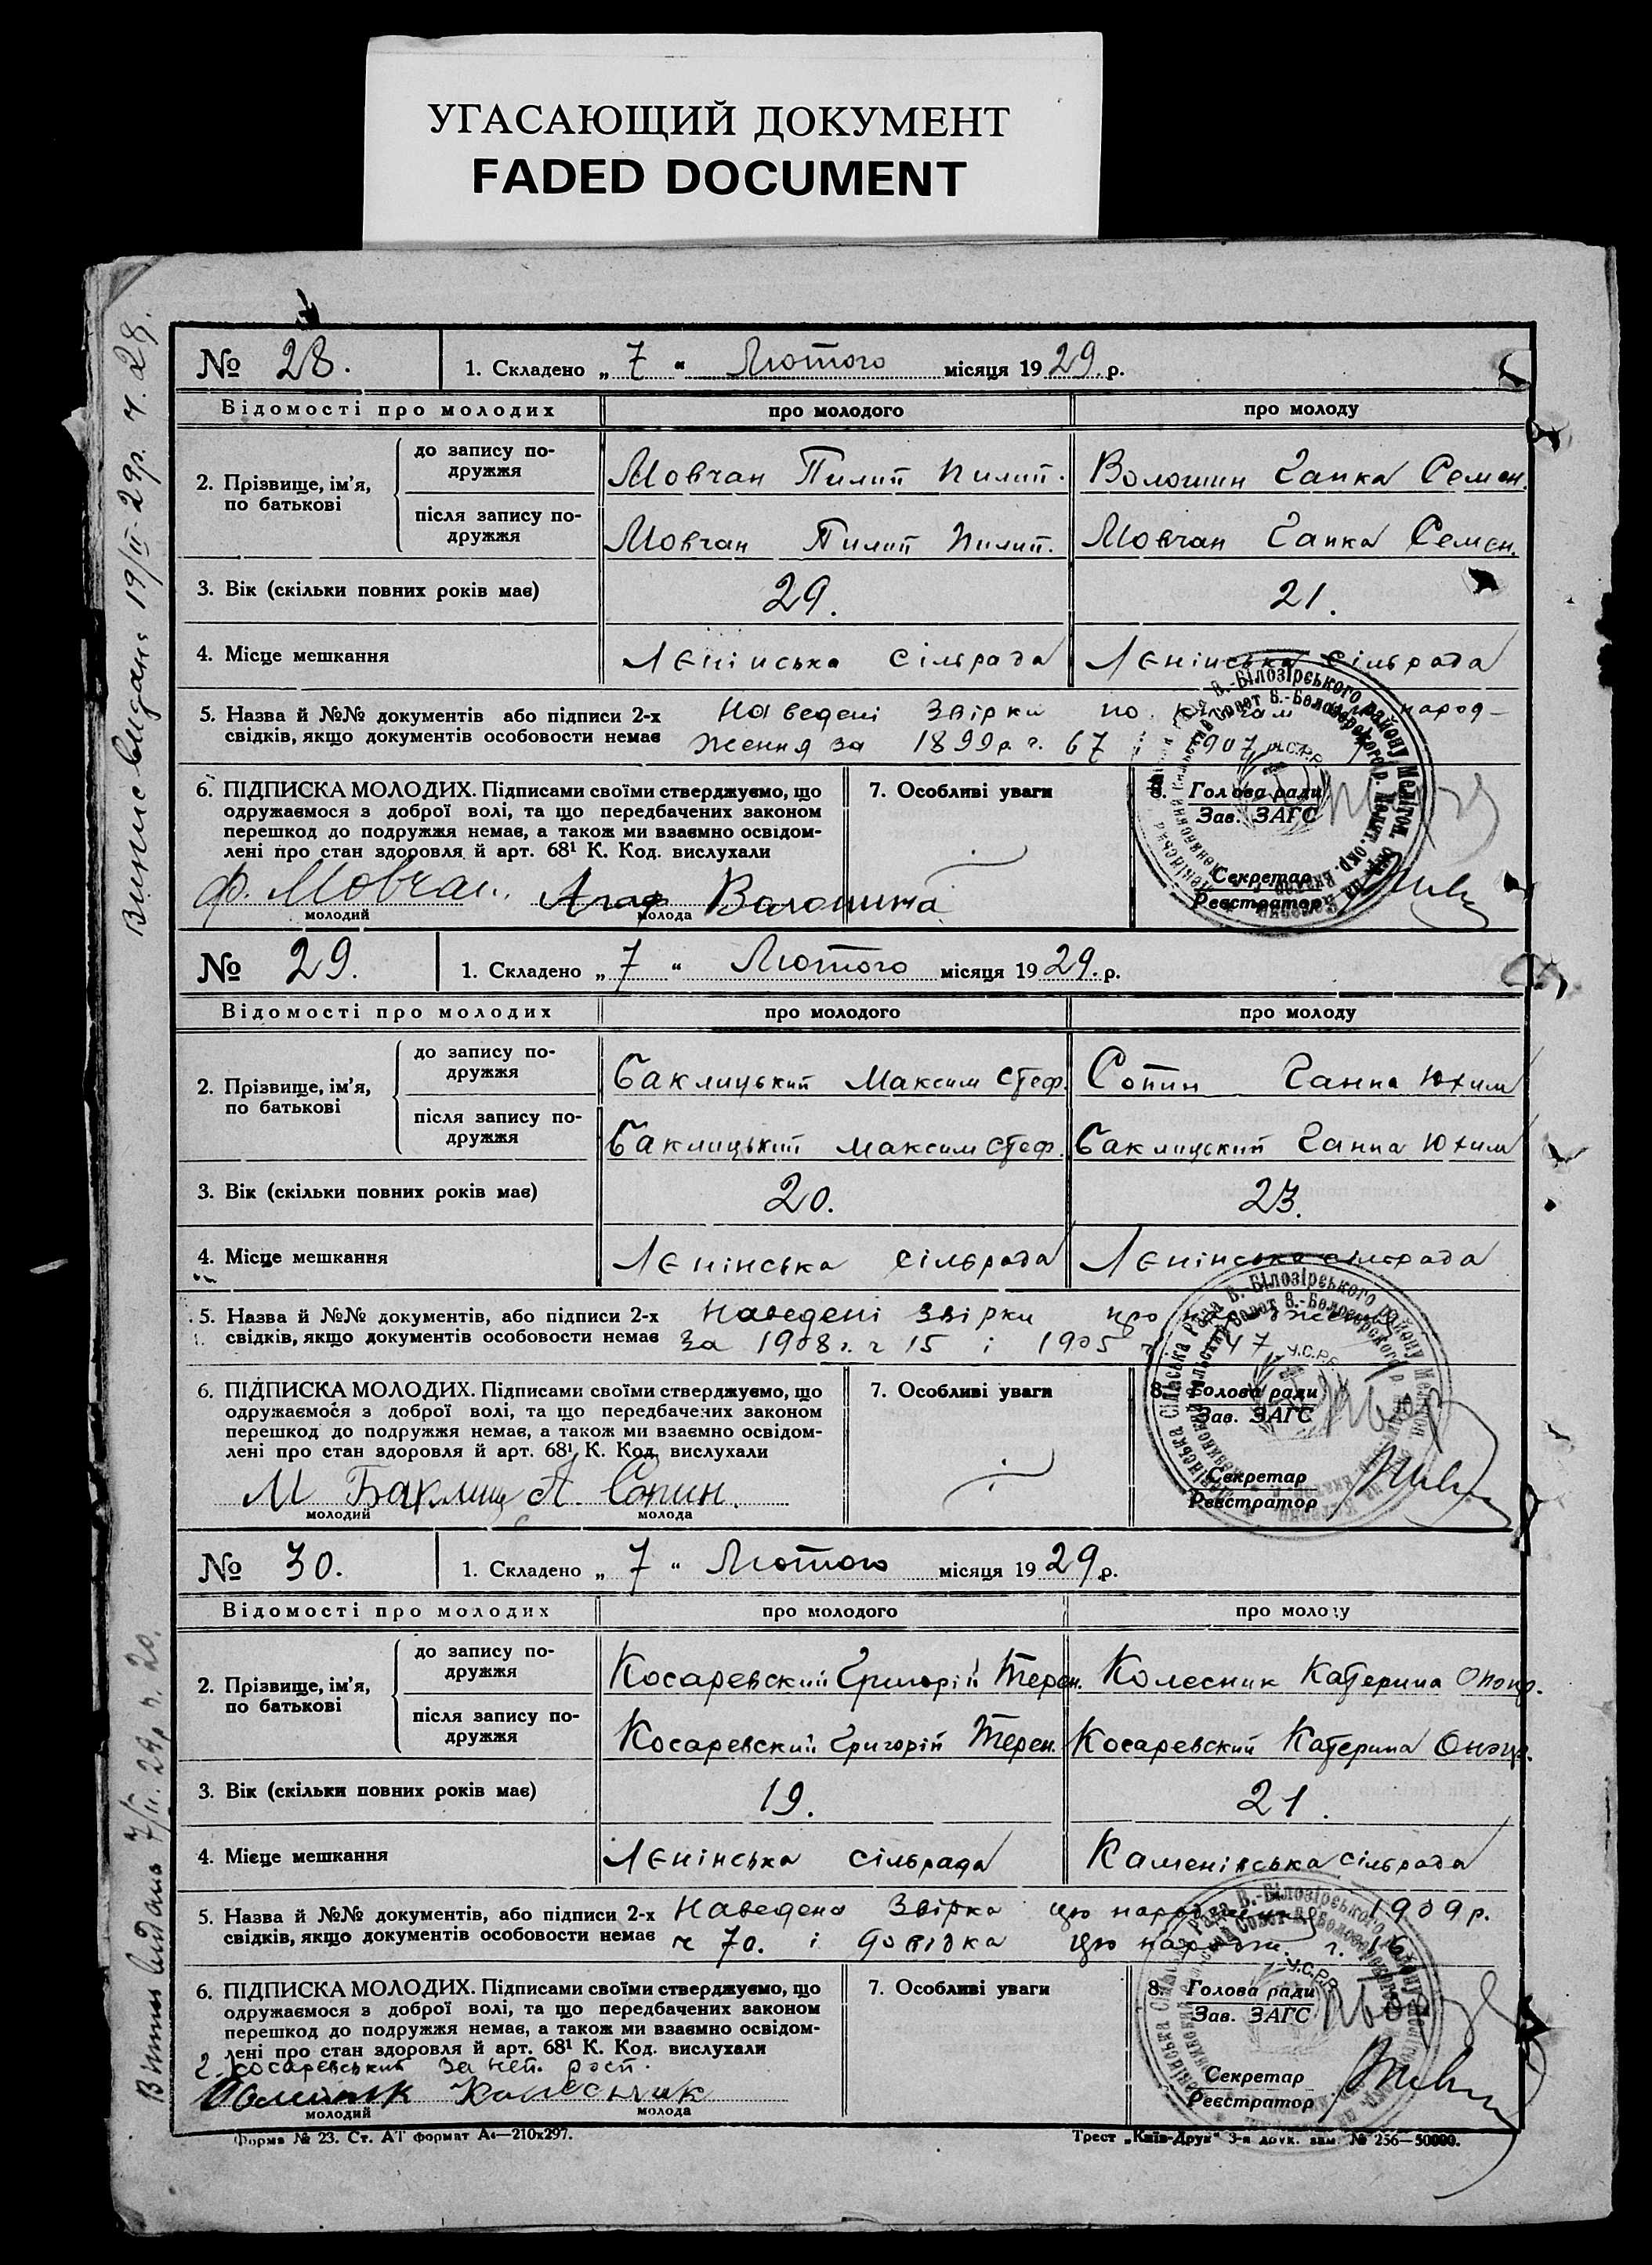 УГАСАЮЩИЙ ДОКУМЕНТ
FADED DOCUMENT
№ 28. 1. Складено „ 7 " Лютого місяця 19 29. р.
Відомості про молодих про молодого про молоду
2. Прізвище, ім'я, по батькові
до запису по-
дружжя
Мовчан Пилип Пилип. Волошин Гапка Семен.
після запису по-
дружжя
Мовчан Пилип Пилип. Мовчан Гапка Семен.
3. Вік (скільки повних років має) 29. 21.
4. Місце мешкання Лєнінська сільрада Лєнінська сільрада
5. Назва й №№ документів або підписи 2-х Наведені звірки по народ-
свідків, якщо документів особовости немає ження за 1899 р. ч. 67 907
6. ПІДПИСКА МОЛОДИХ. Підписами своїми стверджуємо, що
одружаємося з доброї волі, та що передбачених законом
перешкод до подружжя немає, а також ми взаємно освідом-
лені про стан здоровля й арт. 68¹ К. Код. вислухали
Ф. Мовчан. Волошина
молодий молода
7. Особливі уваги
8. Голова ради
Зав. ЗАГС
Секретар
Реєстратор
№ 29. 1. Складено „ 7 " Лютого місяця 19 29. р.
Відомості про молодих про молодого про молоду
2. Прізвище, ім'я, по батькові
до запису по-
дружжя
Баклицький Максим Стеф. Сопин Ганна Юхим
після запису по-
дружжя
Баклицький Максим Стеф. Баклицький Ганна Юхим
3. Вік (скільки повних років має) 20. 23.
4. Місце мешкання Лєнінська сільрада Лєнінська сільрада
5. Назва й №№ документів, або підписи 2-х Наведені звірки про
свідків, якщо документів особовости немає за 1908 р. ч 15 і 1905 47
6. ПІДПИСКА МОЛОДИХ. Підписами своїми стверджуємо, що
одружаємося з доброї волі, та що передбачених законом
перешкод до подружжя немає, а також ми взаємно освідом-
лені про стан здоровля й арт. 68¹ К. Код. вислухали
М Баклиц А. Сопин.
молодий молода
7. Особливі уваги
8. Голова ради
Зав. ЗАГС
Секретар
Реєстратор
№ 30. 1. Складено „ 7 " Лютого місяця 19 29 р.
Відомості про молодих про молодого про молоду
2. Прізвище, ім'я, по батькові
до запису по-
дружжя
Косаревский Григорій Терен. Колесник Катерина
після запису по-
дружжя
Косаревский Григорій Терен. Косаревский Катерина
3. Вік (скільки повних років має) 19. 21.
4. Місце мешкання Лєнінська сільрада Каменівська сільрада
5. Назва й №№ документів, або підписи 2-х Наведена звірка про 1909 р.
свідків, якщо документів особовости немає ч 70. і довідка про
6. ПІДПИСКА МОЛОДИХ. Підписами своїми стверджуємо, що
одружаємося з доброї волі, та що передбачених законом
перешкод до подружжя немає, а також ми взаємно освідом-
лені про стан здоровля й арт. 68¹ К. Код. вислухали
Г. Косаревський за неп. росп.
Колесник
молодий молода
7. Особливі уваги
8. Голова ради
Зав. ЗАГС
Секретар
Реєстратор
Форма № 23. Ст. АТ формат А₄—210х297. Трест „Київ-Друк" 3-я друк. зам. № 256—50000.
Випис видан. 19/II 29 р. ч. 28.
Випис видань 7/II. 29 р ч. 20.